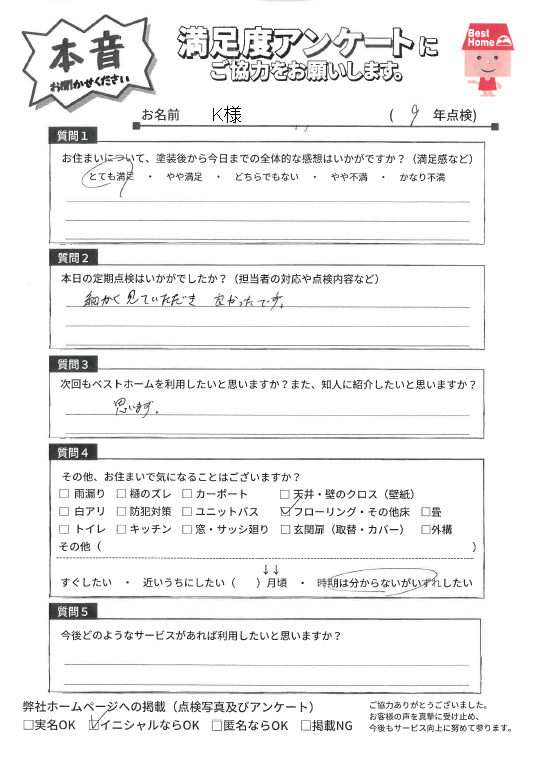 本音
お聞かせください
満足度アンケートに
ご協力をお願いします。
Best Home
お名前 K様 ( 9 年点検)
質問1
お住まいについて、塗装後から今日までの全体的な感想はいかがですか?(満足感など)
とても満足 ・ やや満足 ・ どちらでもない ・ やや不満 ・ かなり不満
質問2
本日の定期点検はいかがでしたか?(担当者の対応や点検内容など)
細かく見ていただき 良かったです。
質問3
次回もベストホームを利用したいと思いますか?また、知人に紹介したいと思いますか?
思います。
質問4
その他、お住まいで気になることはございますか?
□ 雨漏り □ 樋のズレ □ カーポート □ 天井・壁のクロス(壁紙)
□ 白アリ □ 防犯対策 □ ユニットバス ☑ フローリング・その他床 □畳
□ トイレ □ キッチン □ 窓・サッシ廻り □ 玄関扉(取替・カバー) □外構
その他( )
↓↓
すぐしたい ・ 近いうちにしたい( )月頃 ・ 時期は分からないがいずれしたい
質問5
今後どのようなサービスがあれば利用したいと思いますか?
弊社ホームページへの掲載(点検写真及びアンケート)
□実名OK ☑イニシャルならOK □匿名ならOK □掲載NG
ご協力ありがとうございました。
お客様の声を真摯に受け止め、
今後もサービス向上に努めて参ります。